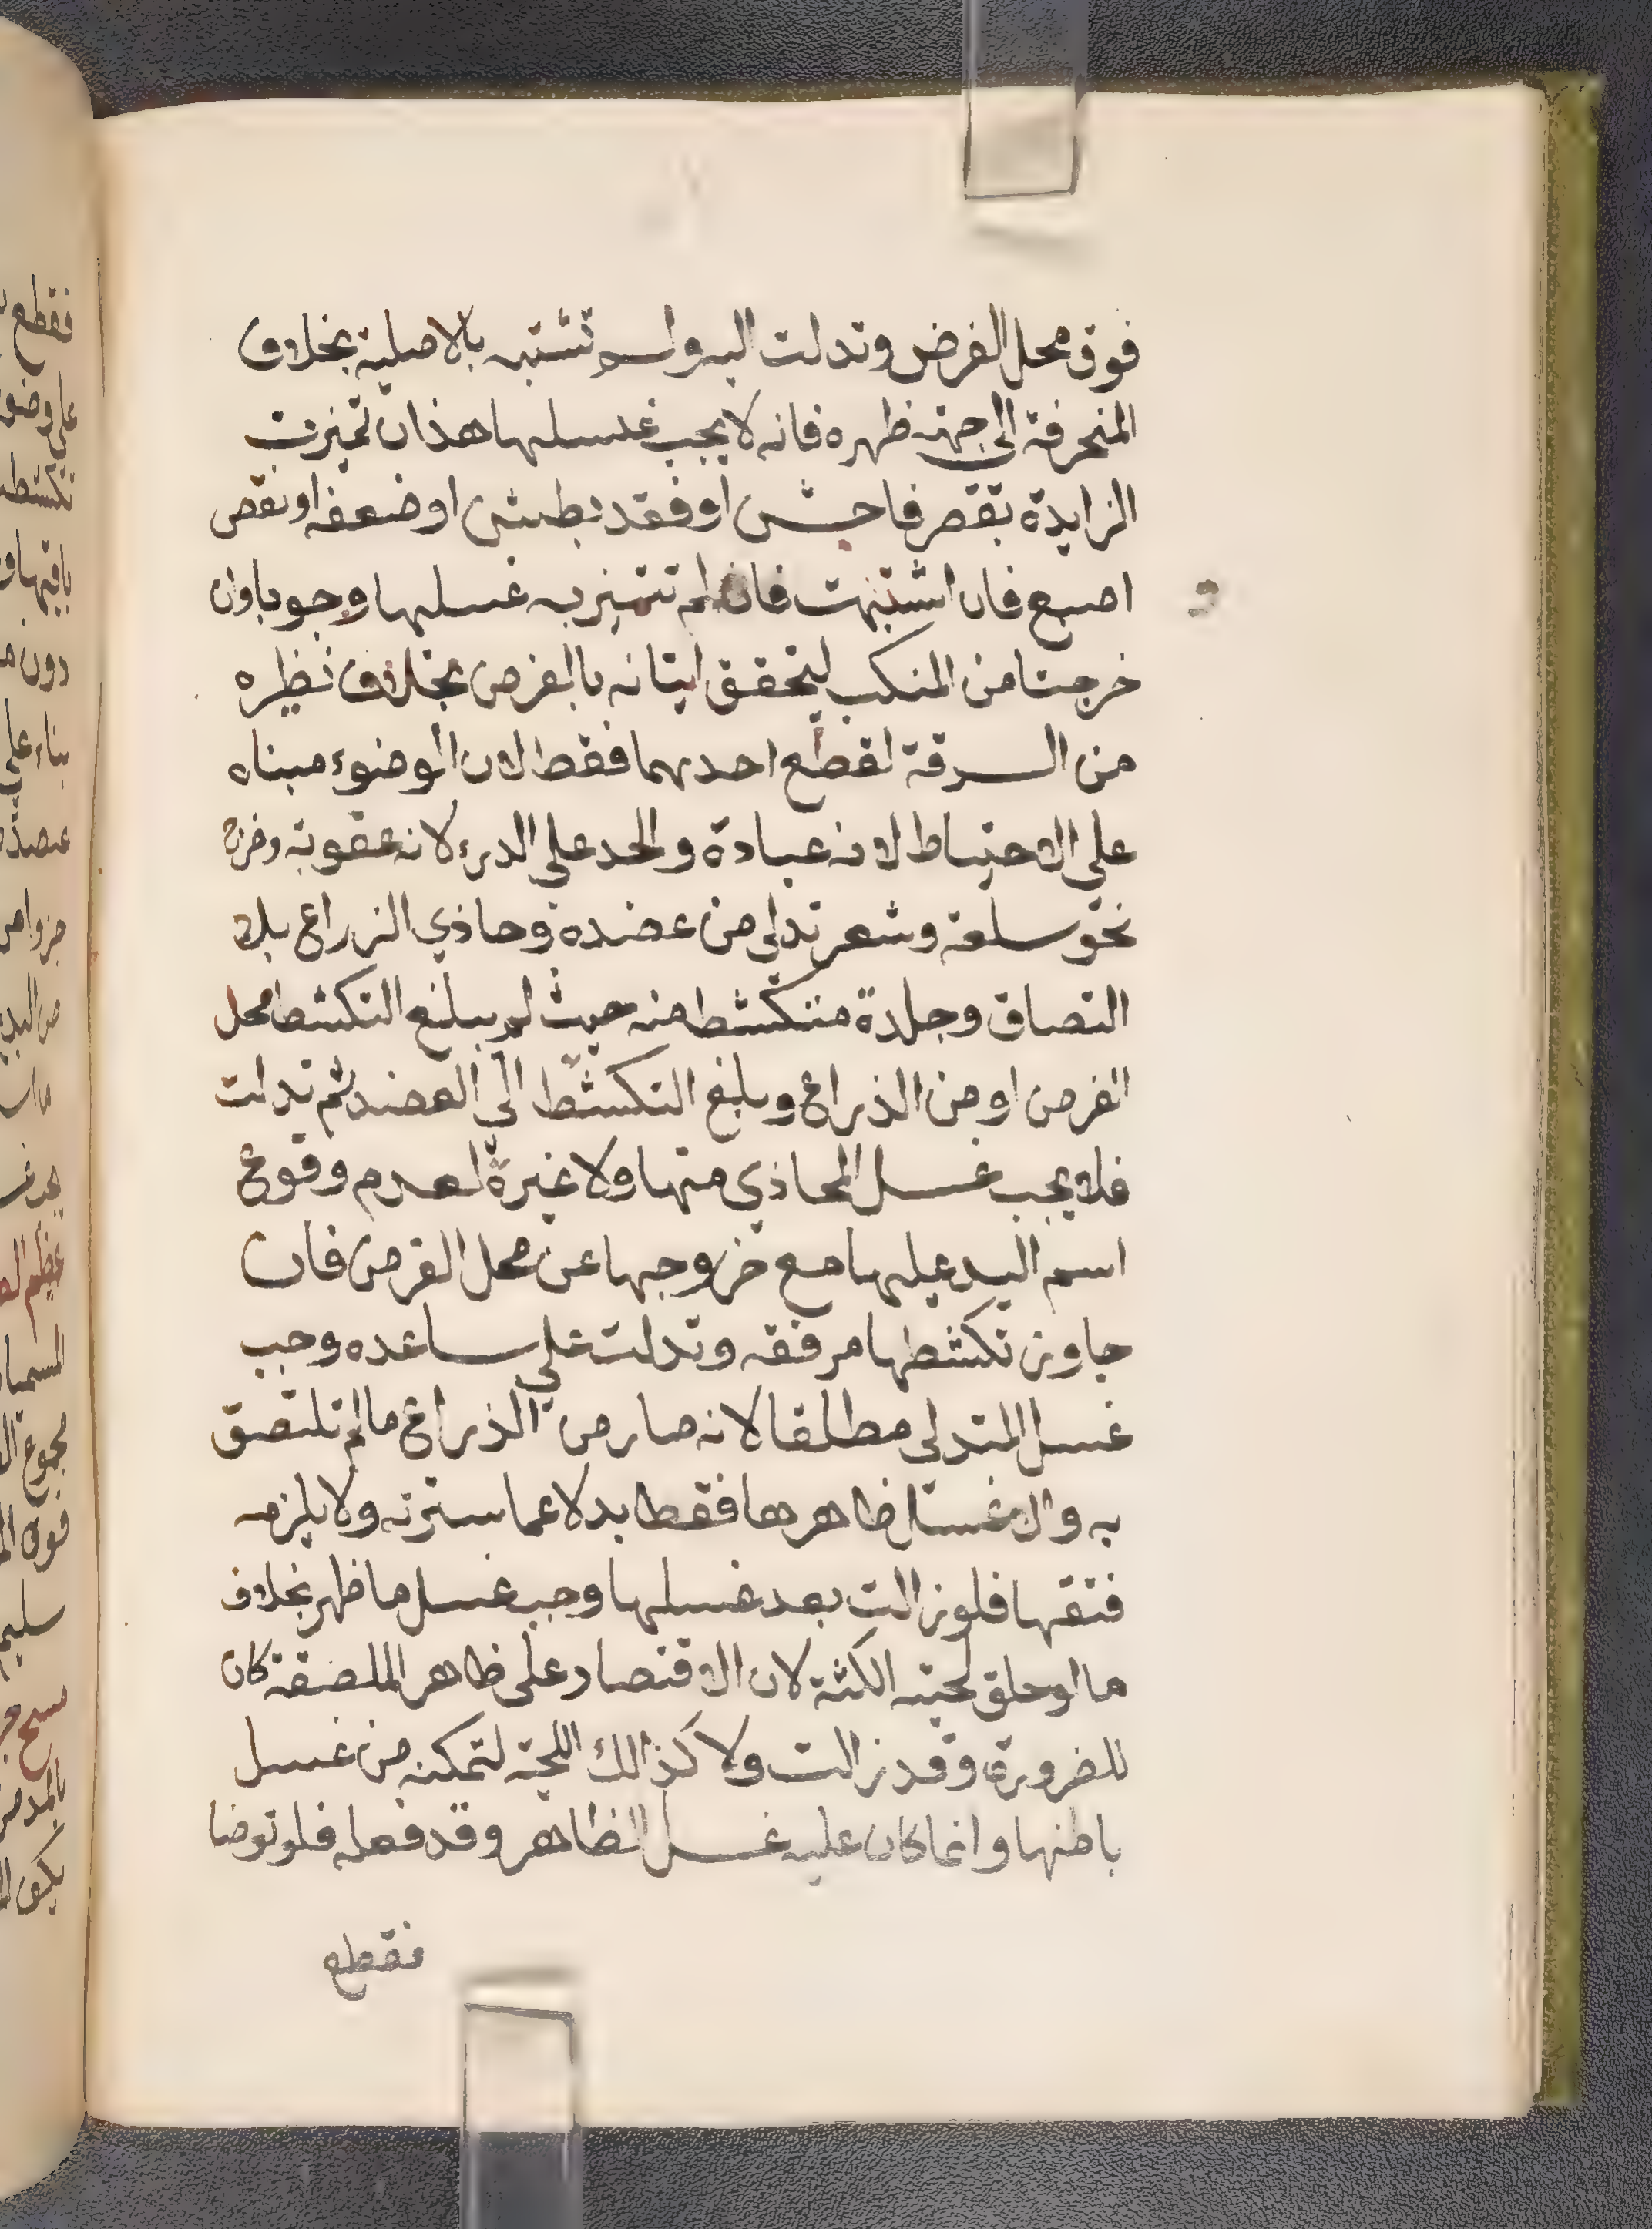 فوق محل الفرض وتدلت اليه ولم تشتبه بالاصلية بخلاف
المنحرفة الي جهة ظهره فانه لا يجب غسلها هذا ان تميزت
الزايدة بقصر فاحش او فقد بطش او ضعفه او نقص
اصبع فان اشتبهت فان لم تتميز به غسلها وجوبا وان
خرجتا من المنكب ليتحقق اتيانه بالفرض بخلاف نظيره
من السرقة لقطع احدهما فقط لان الوضوء مبناه
علي الاحتياط لانه عبادة والحد علي الدرء لانه عقوبة وخرج
نحو سلعة وشعر تدلي من عضده وحاذي الزراع بلا
التصاق وجلدة متكشطة منه حيث لم يبلغ التكشط محل
الفرض او من الذراع وبلغ التكشط الي العضد ثم تدلت
فلا يجب غسل المحاذي منها ولا غيره لعدم وقوع
اسم اليد عليها مع خروجها عن محل الفرض فان
جاوز تكشطها مرفقه وتدلت علي ساعده وجب
غسل المتدلي مطلقا لانه صار من الذراع ما لم تلتصق
به والا غسل ظاهرها فقط بدلا عما سترته ولا يلزمه
فتقها فلو زالت بعد غسلها وجب غسل ما ظهر بخلاف
ما لو حلق لحيته الكثة لان الاقتصار على ظاهر الملصقة كان
للضرورة وقد زالت ولا كذالك اللحية لتمكنه من غسل
باطنها وانما كان عليه غسل الظاهر وقد فعله فلو توضا
فقطع